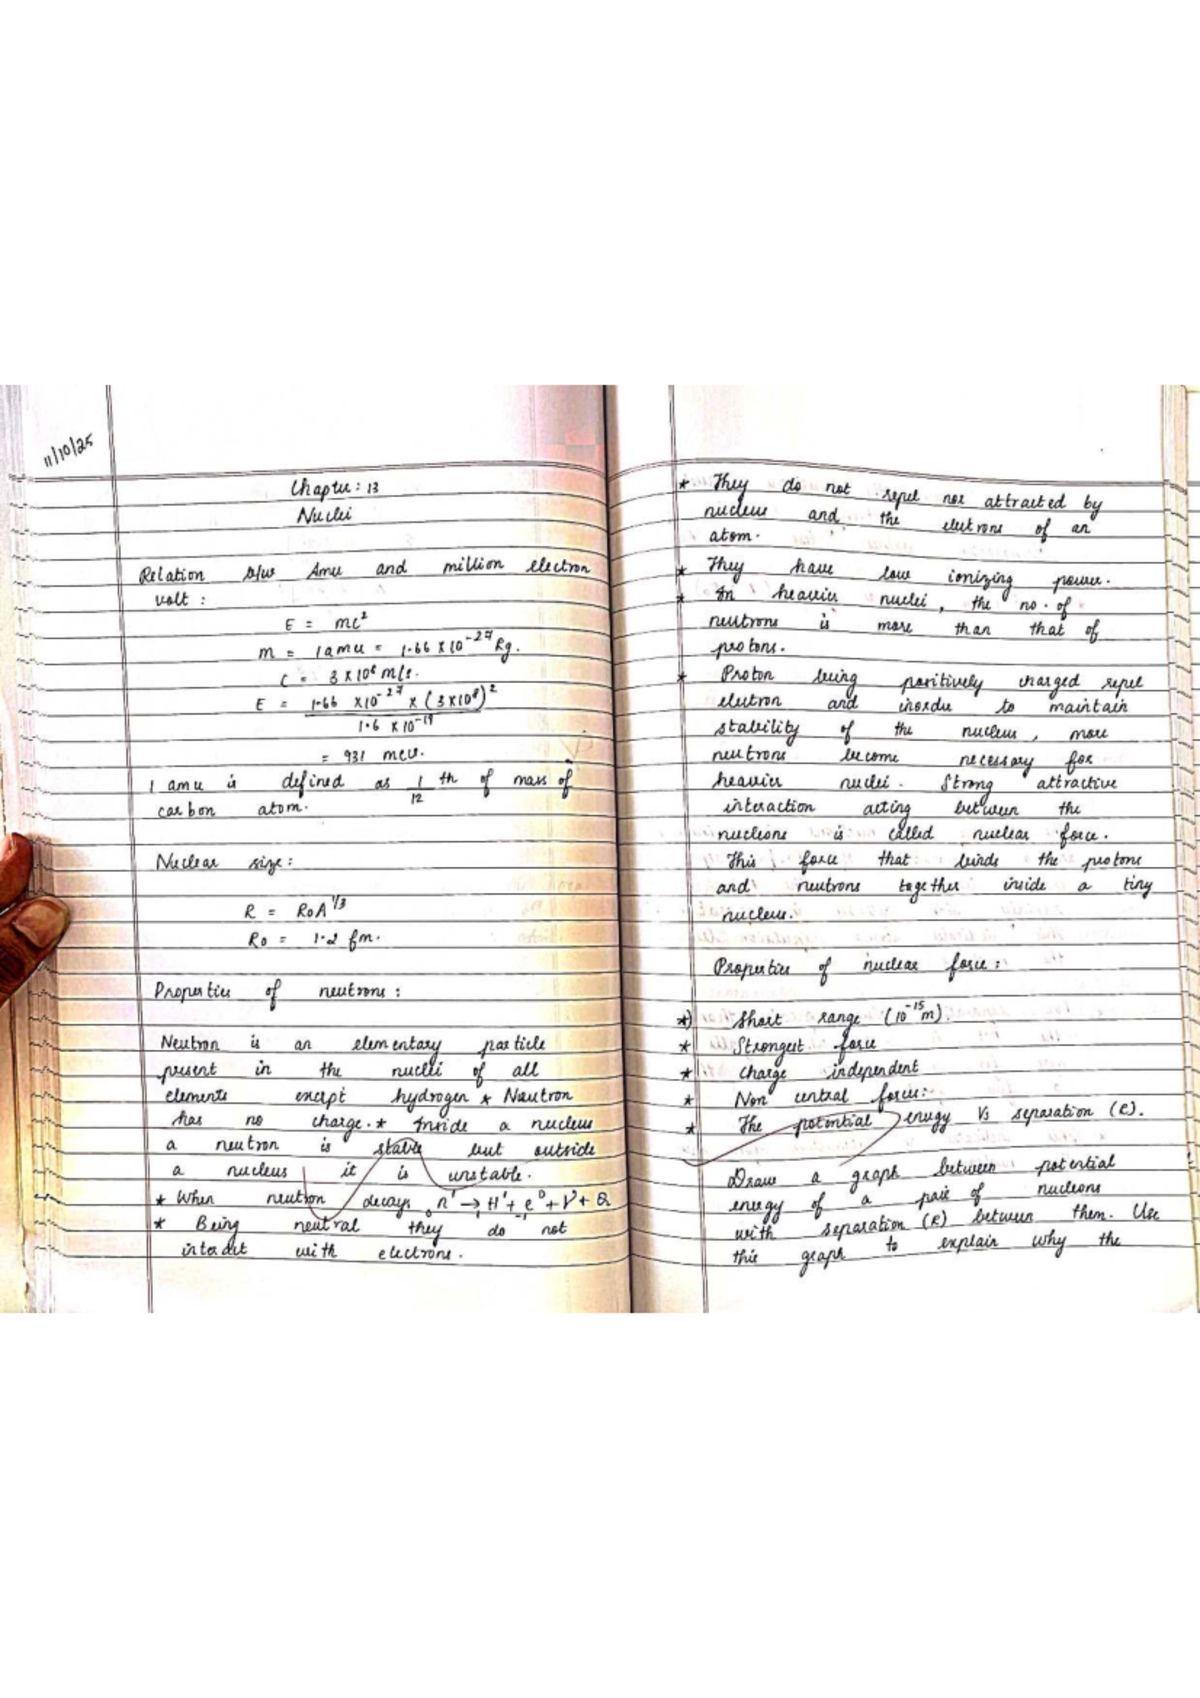 11/10/25
Chapter: 13
Nuclei
Relation b/w Amu and million electron
volt :
E = mc²
m = 1amu = 1.66 x 10⁻²⁷ kg.
C = 3 x 10⁸ m/s.
E = 1.66 x10⁻²⁷ x (3x10⁸)²
1.6 x 10⁻¹⁹
= 931 mev.
1 amu is defined as 1/12 th of mass of
carbon atom.
Nuclear size :
R = R₀A^1/3
R₀ = 1.2 fm.
Properties of neutrons :
Neutron is an elementary particle
present in the nuclei of all
elements except hydrogen * Neutron
has no charge. * Inside a nucleus
a neutron is stable but outside
a nucleus it is unstable.
* When neutron decays ₀n¹ → ₁H¹ + ₋₁e⁰ + ν + Q
* Being neutral they do not
interact with electrons.
* They do not repel nor attracted by
nucleus and the electrons of an
atom.
* They have low ionizing power.
* In heavier nuclei, the no. of
neutrons is more than that of
protons.
* Proton being positively charged repel
electron and inorder to maintain
stability of the nucleus, more
neutrons become necessary for
heavier nuclei. Strong attractive
interaction acting between the
nucleons is called nuclear force.
This force that binds the protons
and neutrons together inside a tiny
nucleus.
Properties of nuclear force :
*) Short range (10⁻¹⁵m).
* Strongest force
* charge independent
* Non central forces:
* The potential energy Vs separation (R).
Draw a graph between potential
energy of a pair of nucleons
with separation (R) between them. Use
this graph to explain why the